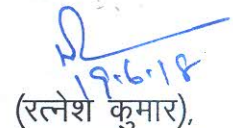 19.6.18
(रत्नेश कुमार),